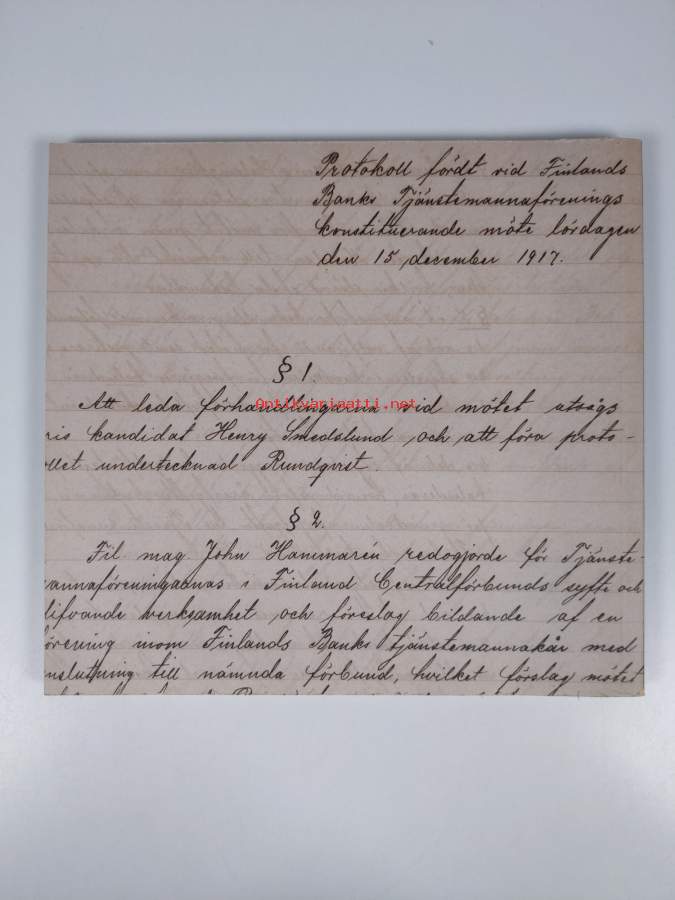 Protokoll fördt vid Finlands
Banks Tjänstemannaförenings
konstituerande möte lördagen
den 15 december 1917.
§ 1.
Att leda förhandlingarna vid mötet utsågs
ris kandidat Henry Smedslund och att föra proto-
ollet undertecknad Rundqvist.
§ 2.
Fil. mag. John Hammarén redogjorde för Tjänste-
annaföreningarnas i Finland Centralförbunds syfte och
lifvande verksamhet och föreslog bildande af en
örening inom Finlands Banks tjänstemannakår med
nslutning till nämnda förbund, hvilket förslag mötet
Antikvariaatti.net